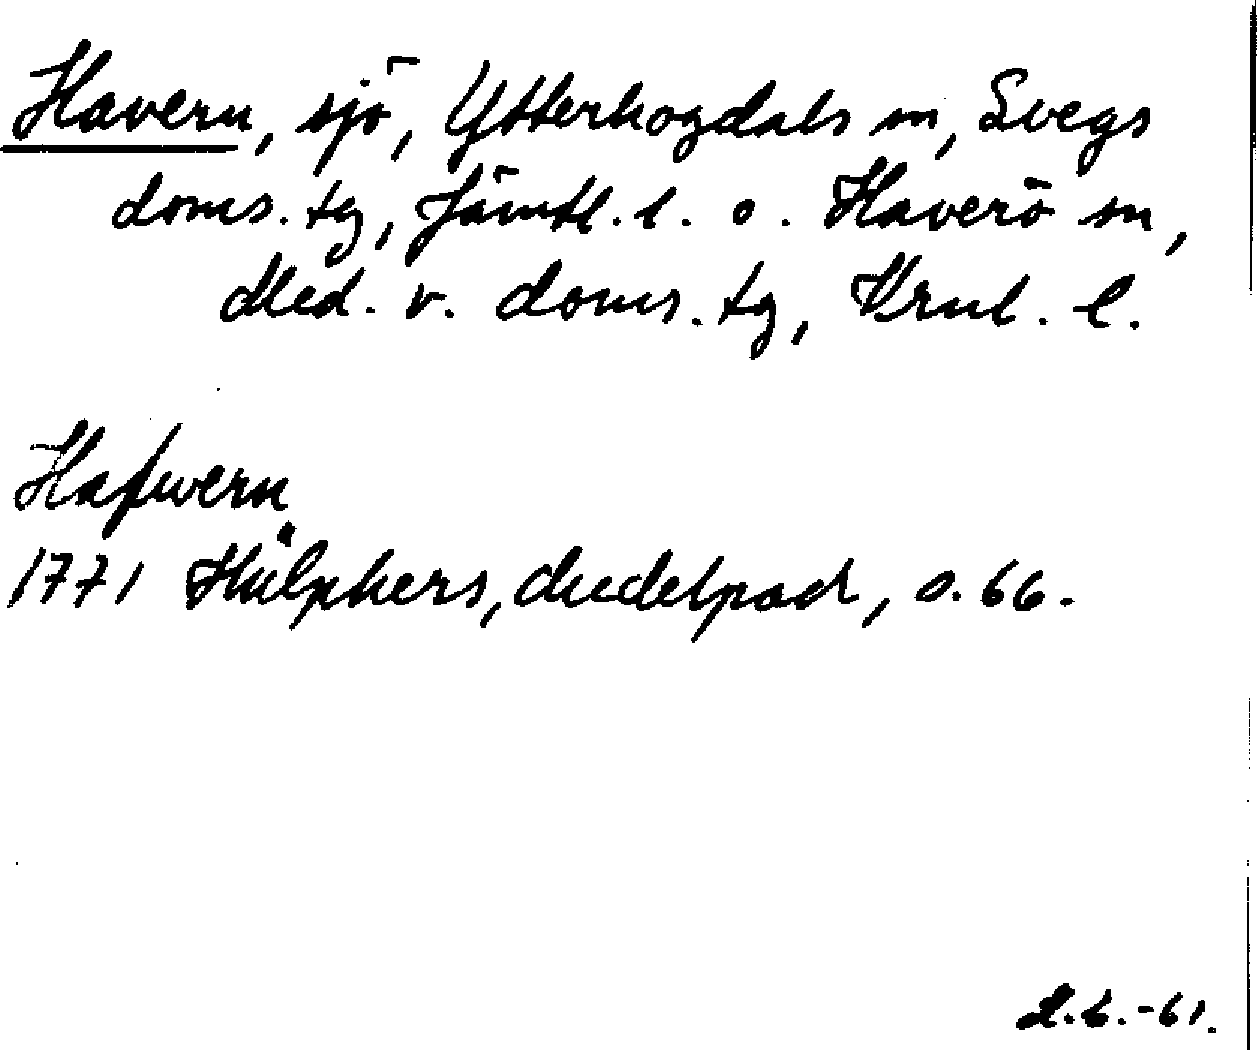 Havern, sjö, Ytterhogdals sn, Svegs
doms. tg, Jämtl. l. o. Haverö sn,
Med. v. doms. tg, Vrnl. l.
Hafwern
1771 Hülphers, Medelpad, s. 66.
-61.